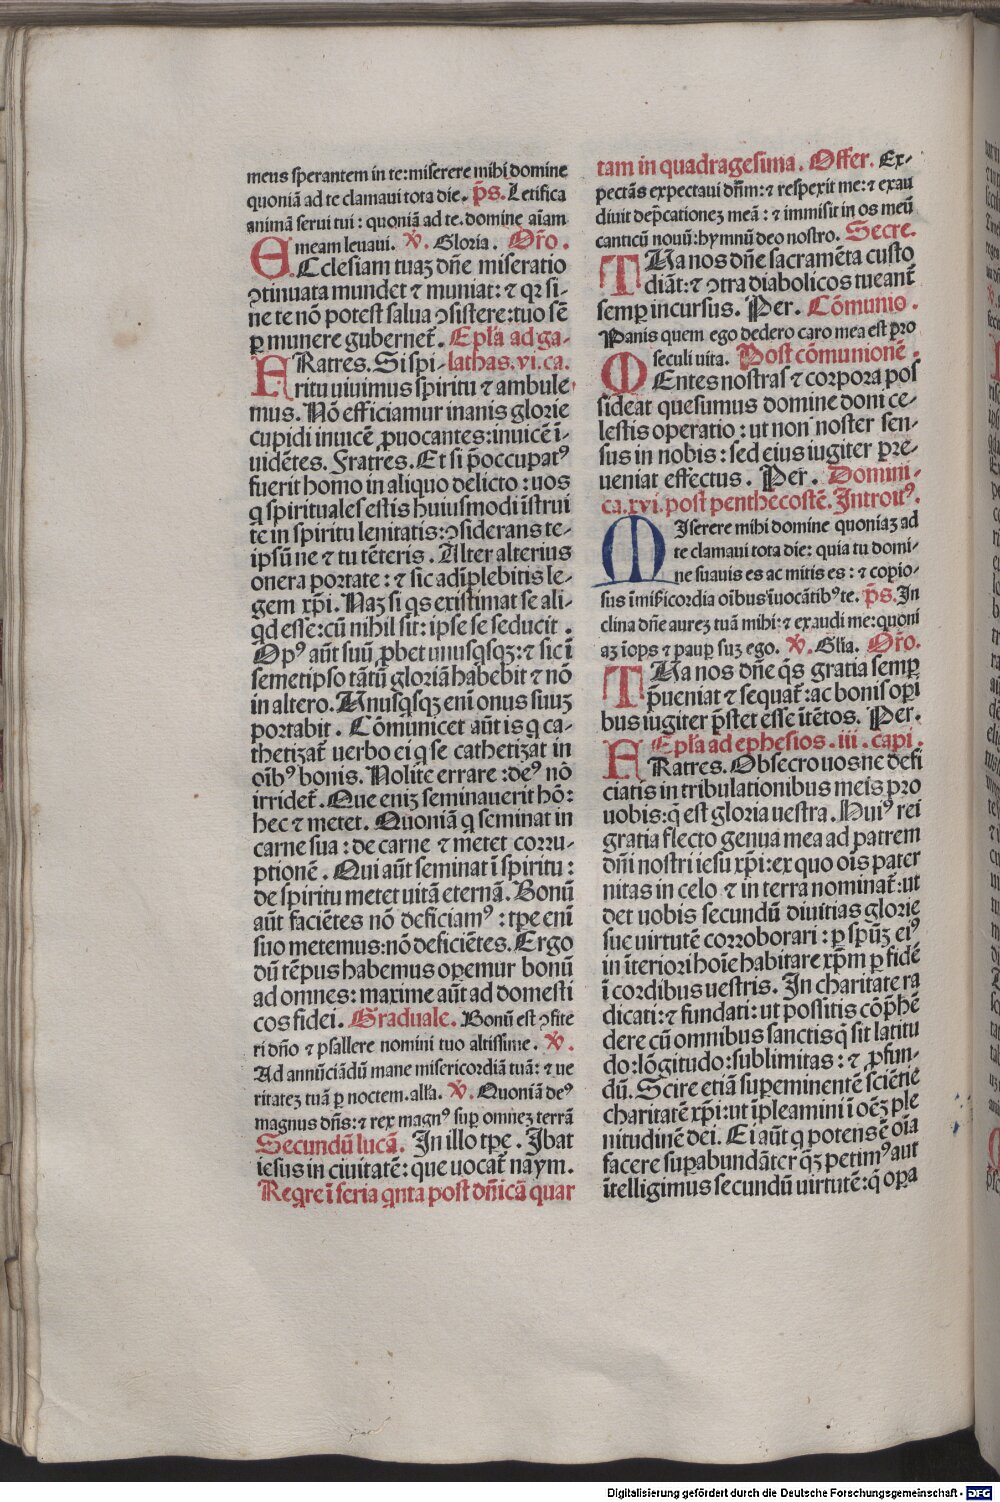 meus sperantem in te: miserere mihi domine
quoniā ad te clamaui tota die. p̄s. Letifica
animā serui tui: quoniā ad te. domine aīam
meam leuaui. ℣. Gloria. Orō.
ECclesiam tuaꝫ dn̄e miseratio
ↄtinuata mundet ⁊ muniat: ⁊ qꝛ si-
ne te nō potest salua ↄsistere: tuo sē
ꝑ munere gubernet̄. Epl̄a ad ga-
FRatres. Si spi- lathas. vi. ca.
ritu uiuimus spiritu ⁊ ambule
mus. Nō efficiamur inanis glorie
cupidi inuicē ꝓuocantes: inuicē ī-
uidētes. Fratres. Et si p̄occupatꝰ
fuerit homo in aliquo delicto: uos
q spirituales estis huiusmodi īstrui
te in spiritu lenitatis: ↄsiderans te-
ipsū ne ⁊ tu tēteris. Alter alterius
onera portate: ⁊ sic adīplebitis le-
gem xp̄i. Naꝫ si qs existimat se ali-
qd esse: cū nihil sit: ipse se seducit.
Opꝰ aūt suū ꝓbet unusqsqꝫ: ⁊ sic ī
semetipso tātū gloriā habebit ⁊ nō
in altero. Unusqsqꝫ enī onus suuꝫ
portabit. Cōmunicet aūt is q ca-
thetizat̄ uerbo ei q se cathetizat in
oībꝰ bonis. Nolite errare: deꝰ nō
irridet̄. Que eniꝫ seminauerit hō:
hec ⁊ metet. Quoniā q seminat in
carne sua: de carne ⁊ metet corru-
ptionē. Qui aūt seminat ī spiritu:
de spiritu metet uitā eternā. Bonū
aūt faciētes nō deficiamꝰ: tp̄e enī
suo metemus: nō deficiētes. Ergo
dū tēpus habemus operemur bonū
ad omnes: maxime aūt ad domesti
cos fidei. Graduale. Bonū est ↄfite
ri dn̄o ⁊ psallere nomini tuo altissime. ℣.
Ad annūciādū mane misericordiā tuā: ⁊ ue
ritateꝫ tuā ꝑ noctem. all̄a. ℣. Quoniā deꝰ
magnus dn̄s: ⁊ rex magnꝰ suꝑ omneꝫ terrā
Secundū lucā. In illo tp̄e. Ibat
iesus in ciuitatē: que uocat̄ naym.
Reqre ī feria qnta post dn̄icā quar
tam in quadragesima. Offer. Ex-
pectās expectaui dn̄m: ⁊ respexit me: ⁊ exau
diuit dep̄cationeꝫ meā: ⁊ immisit in os meū
canticū nouū: hymnū deo nostro. Secre.
TUa nos dn̄e sacramēta custo
diāt: ⁊ ↄtra diabolicos tueant̄
semꝑ incursus. Per. Cōmunio.
Panis quem ego dedero caro mea est pro
seculi uita. Post cōmunionē.
MEntes nostras ⁊ corpora pos
sideat quesumus domine doni ce-
lestis operatio: ut non noster sen-
sus in nobis: sed eius iugiter pre-
ueniat effectus. Per. Domini-
ca. xvi. post penthecostē. Introitꝰ.
MIserere mihi domine quoniaꝫ ad
te clamaui tota die: quia tu domi-
ne suauis es ac mitis es: ⁊ copio-
sus ī misericordia oībus īuocātibꝰ te. p̄s. In
clina dn̄e aureꝫ tuā mihi: ⁊ exaudi me: quoni
aꝫ īops ⁊ pauꝑ suꝫ ego. ℣. Gl̄ia. Orō.
TUa nos dn̄e q̄s gratia semꝑ
p̄ueniat ⁊ sequat̄: ac bonis oꝑi
bus iugiter p̄stet esse ītētos. Per.
Epl̄a ad ephesios. iii. capi.
FRatres. Obsecro uos ne defi
ciatis in tribulationibus meis pro
uobis: q̄ est gloria uestra. Huiꝰ rei
gratia flecto genua mea ad patrem
dn̄i nostri iesu xp̄i: ex quo oīs pater
nitas in celo ⁊ in terra nominat̄: ut
det uobis secundū diuitias glorie
sue uirtutē corroborari: ꝑ spūꝫ eiꝰ
in īteriori hoīe habitare xp̄m ꝑ fidē
ī cordibus uestris. In charitate ra
dicati: ⁊ fundati: ut possitis cōp̄hē
dere cū omnibus sanctis q̄ sit latitu
do: lōgitudo: sublimitas: ⁊ ꝓfun-
dū. Scire etiā suꝑeminentē sciētie
charitatē xp̄i: ut īpleamini ī oēꝫ ple
nitudinē dei. Ei aūt q potens ē oīa
facere suꝑabundāter qꝫ petimꝰ aut
ītelligimus secundū uirtutē: q̄ oꝑa
Digitalisierung gefördert durch die Deutsche Forschungsgemeinschaft - DFG